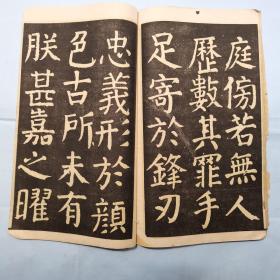 庭傍若無人
歷數其罪手
足寄於鋒刃
忠義形於顏
色古所未有
朕甚嘉之曜